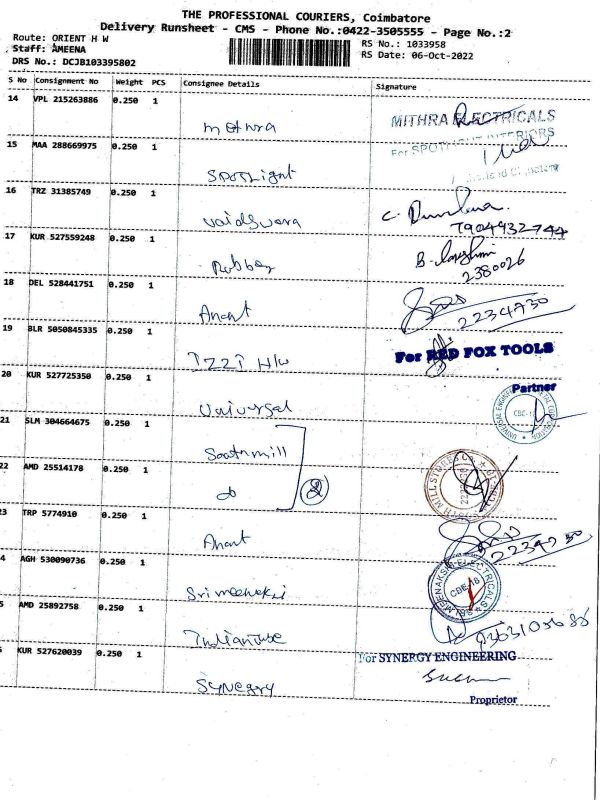 THE PROFESSIONAL COURIERS, Coimbatore
Delivery Runsheet - CMS - Phone No.:0422-3505555 - Page No.:2
Route: ORIENT H W
Staff: AMEENA
DRS No.: DCJB103395802
RS No.: 1033958
RS Date: 06-Oct-2022
S No Consignment No Weight PCS Consignee Details Signature
14 VPL 215263886 0.250 1
MITHRA ELECTRICALS
15 MAA 288669975 0.250 1
For SPOTLIGHT INTERIORS
SPOTLight
16 TRZ 31385749 0.250 1
Vaidswara
7904932744
17 KUR 527559248 0.250 1
Rubber
2380026
18 DEL 528441751 0.250 1
Anant
2234730
19 BLR 5050845335 0.250 1
IZZI H/W
For RED FOX TOOLS
Partner
20 KUR 527725350 0.250 1
Universal
21 SLM 304664675 0.250 1
22 AMD 25514178 0.250 1
do
2
23 TRP 5774910 0.250 1
Anant
4 AGH 530090736 0.250 1
Srimeenakxi
5 AMD 25892758 0.250 1
6 KUR 527620039 0.250 1
For SYNERGY ENGINEERING
Synegry
Proprietor